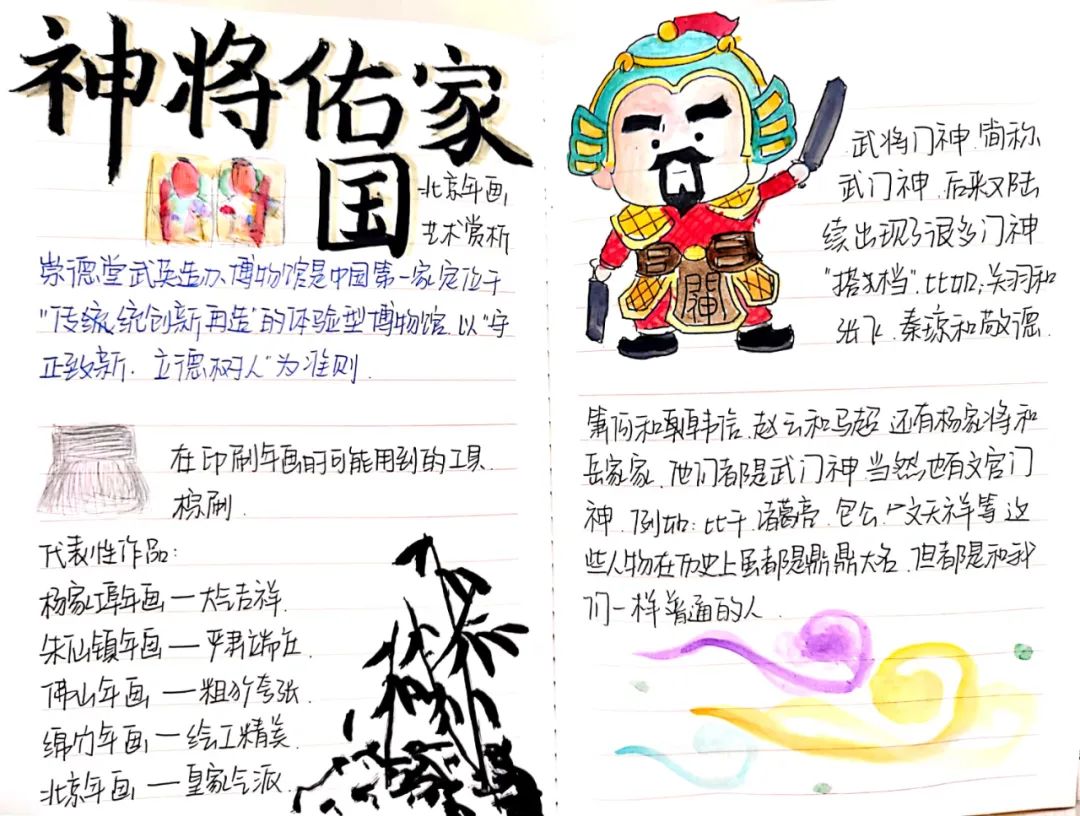 神将佑家
国
北京年画
艺术赏析
崇德堂武英造办博物馆是中国第一家定位于
"传统创新再造"的体验型博物馆.以"守
正致新.立德树人"为准则.
在印刷年画时可能用到的工具.
棕刷.
代表性作品:
杨家埠年画—大气吉祥.
朱仙镇年画—严君端庄.
佛山年画—粗犷夸张.
绵竹年画—绘工精美.
北京年画—皇家气派.
武将门神.简称
武门神.后来又陆
续出现了很多门神
"搭档".比如:关羽和
张飞.秦琼和敬德.
門神
萧何和韩信.赵云和马超.还有杨家将和
岳家家.他们都是武门神.当然也有文官门
神.例如:比干.诸葛亮.包公.文天祥等.这
些人物在历史上虽都是鼎鼎大名.但都是和我
们一样普通的人.